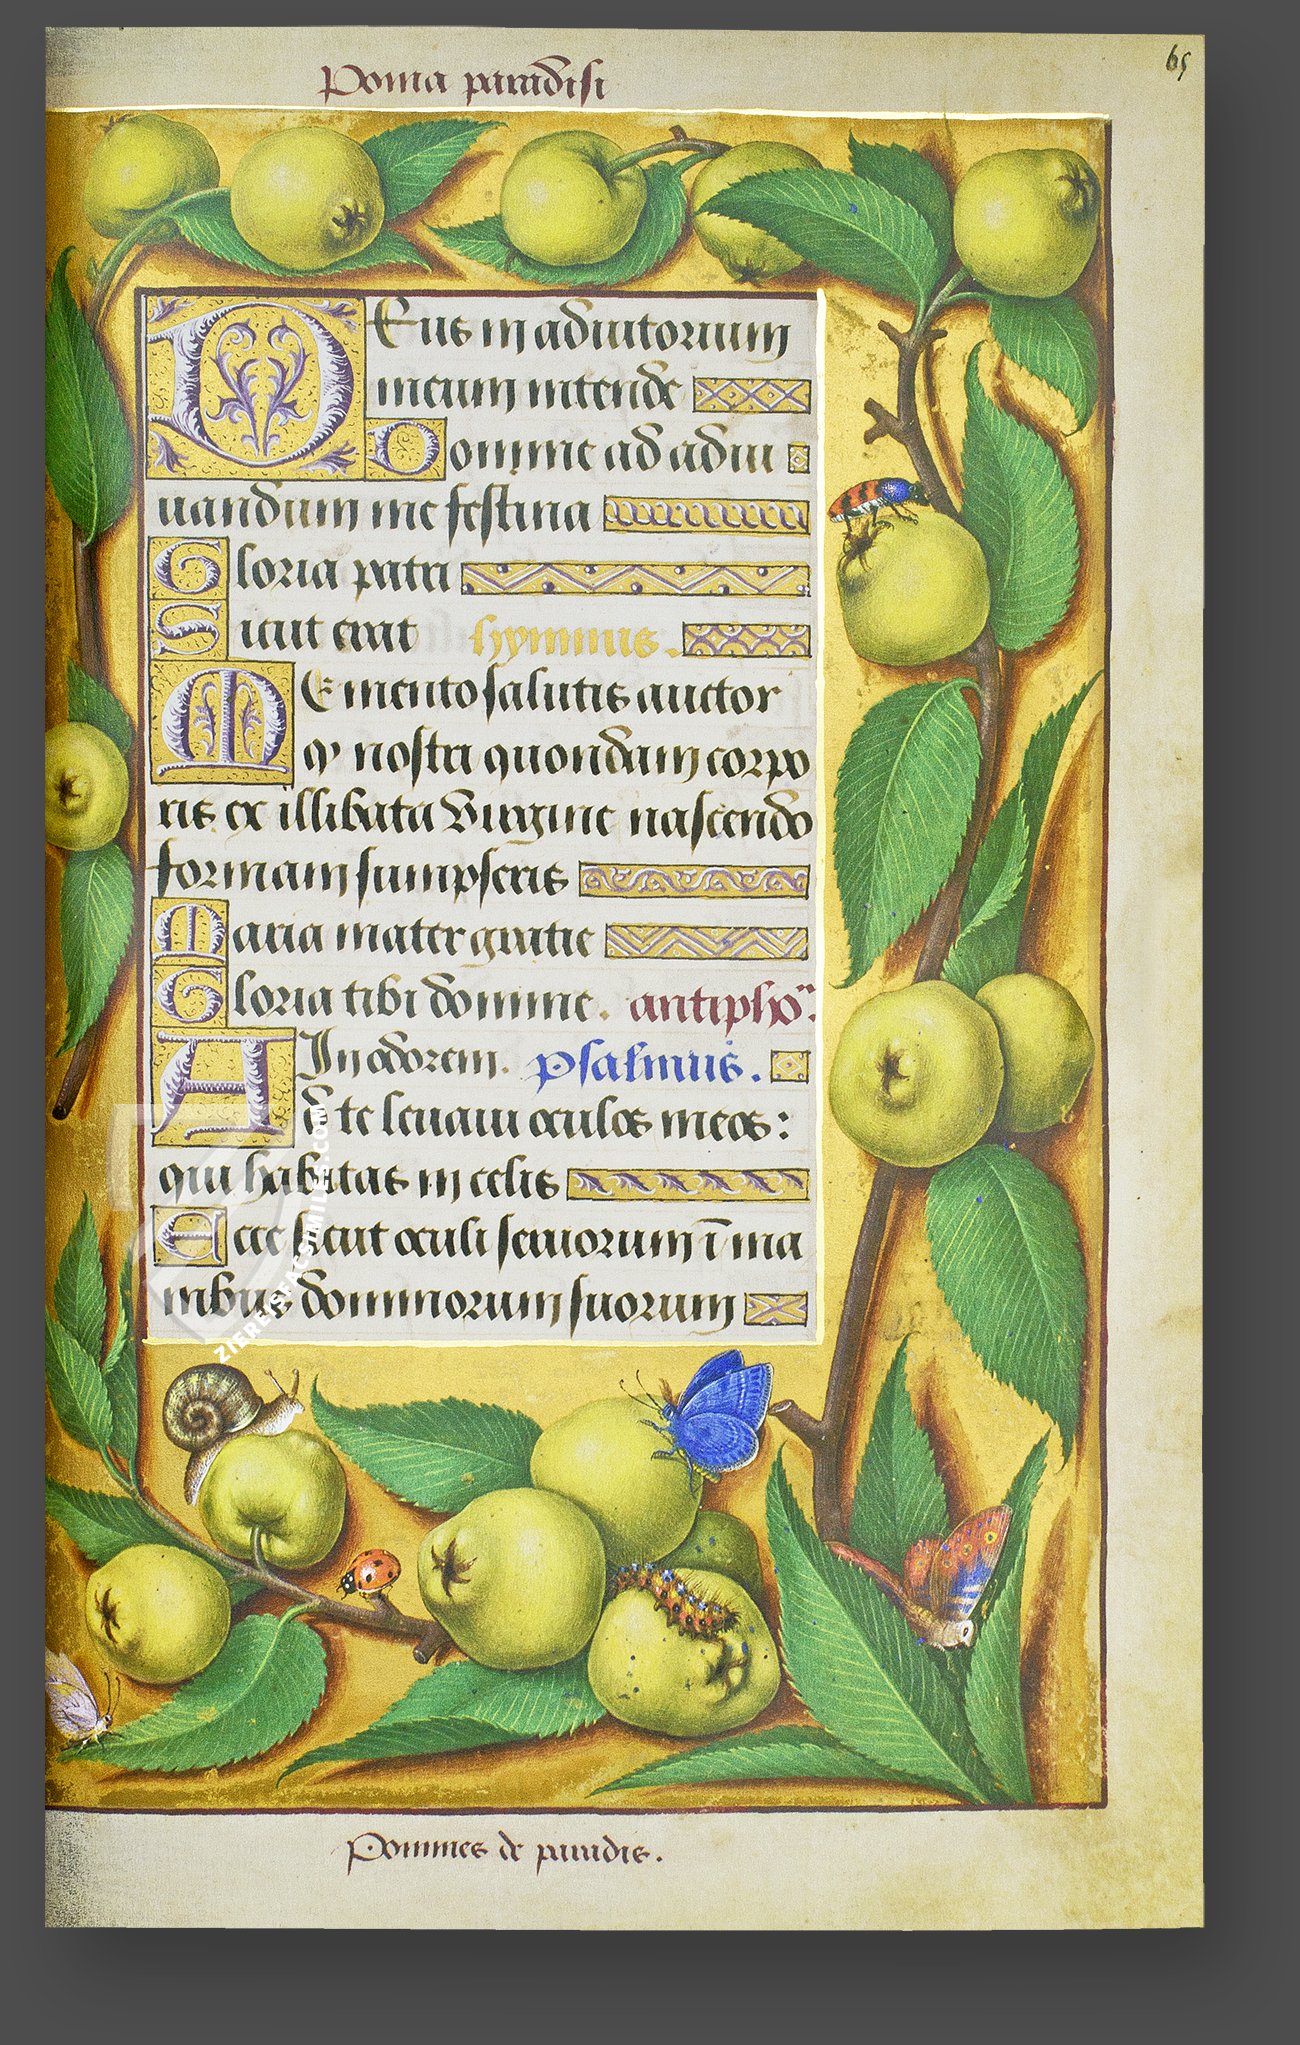 65
Poma paradisi
Deus in adiutorium
meum intende
Domine ad adiu
uandum me festina
Gloria patri
Sicut erat hymnus.
Memento salutis auctor
q nostri quondam corpo
ris ex illibata Virgine nascendo
formam sumpseris
Maria mater gratie
Gloria tibi domine. antipho
In odorem. psalmus.
Ad te leuaui oculos meos:
qui habitas in celis
Ecce sicut oculi seruorum ī ma
nibus dominorum suorum
Pommes de paradis.
ZIEREISFACSIMILES.COM